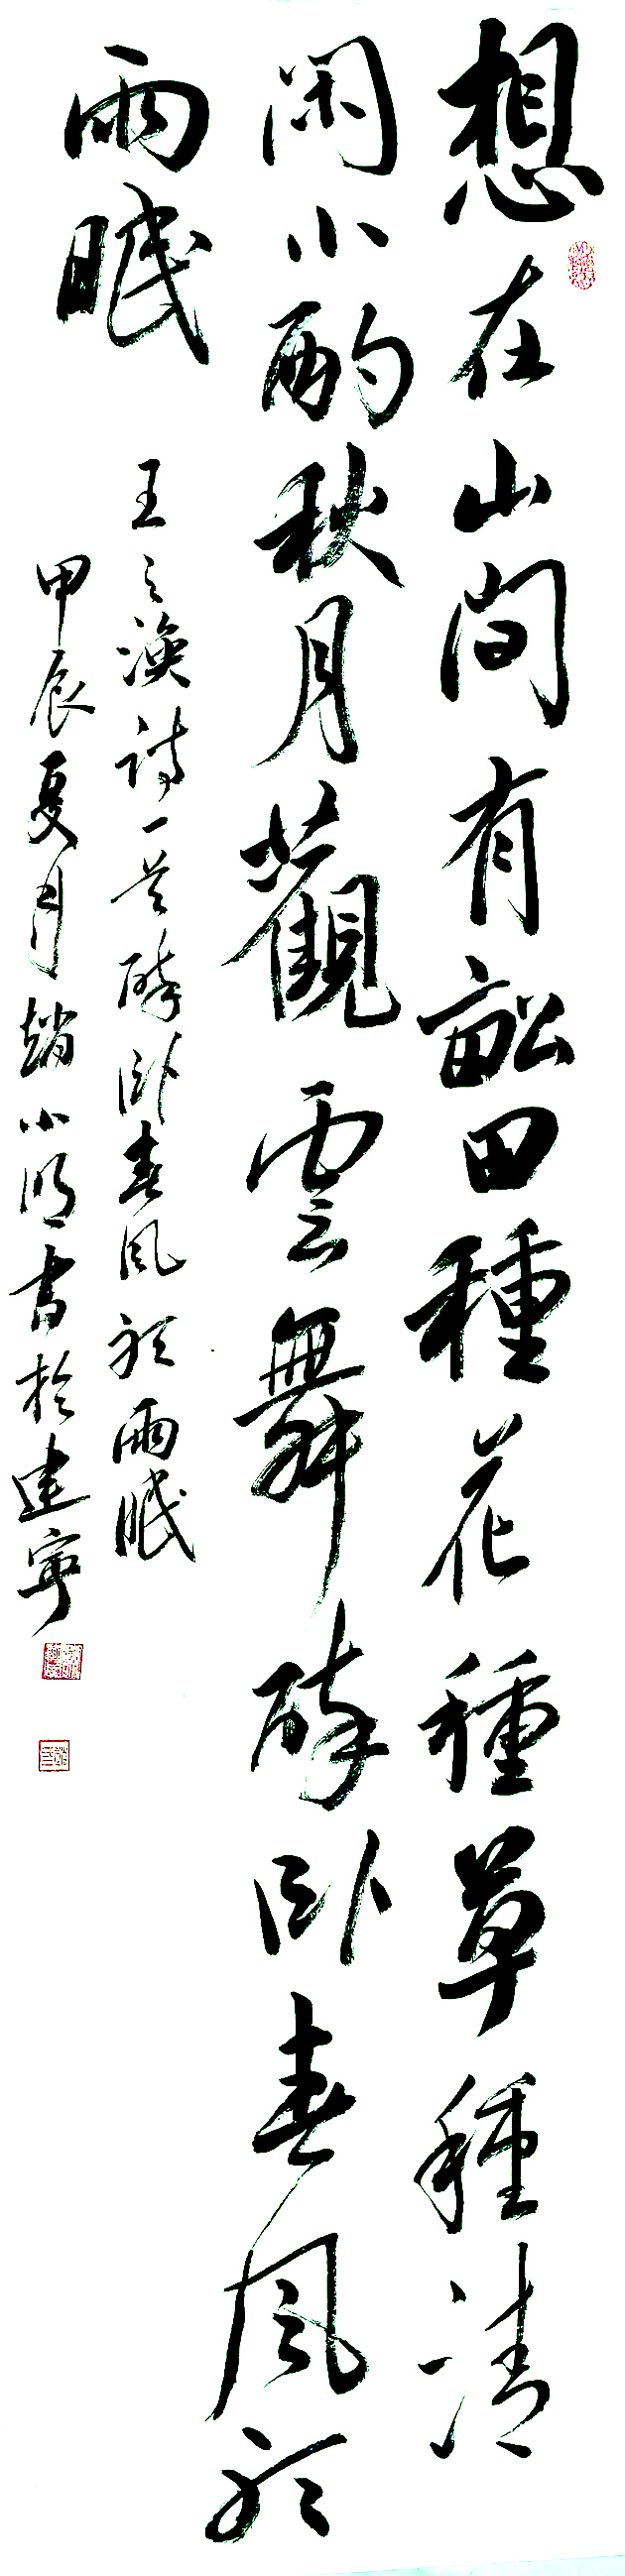 想在山間有畝田種花種草種清
閑小酌秋月觀雲舞醉臥春風聽
雨眠
王之渙詩一首醉臥春風聽雨眠
甲辰夏月趙小明書於建寧